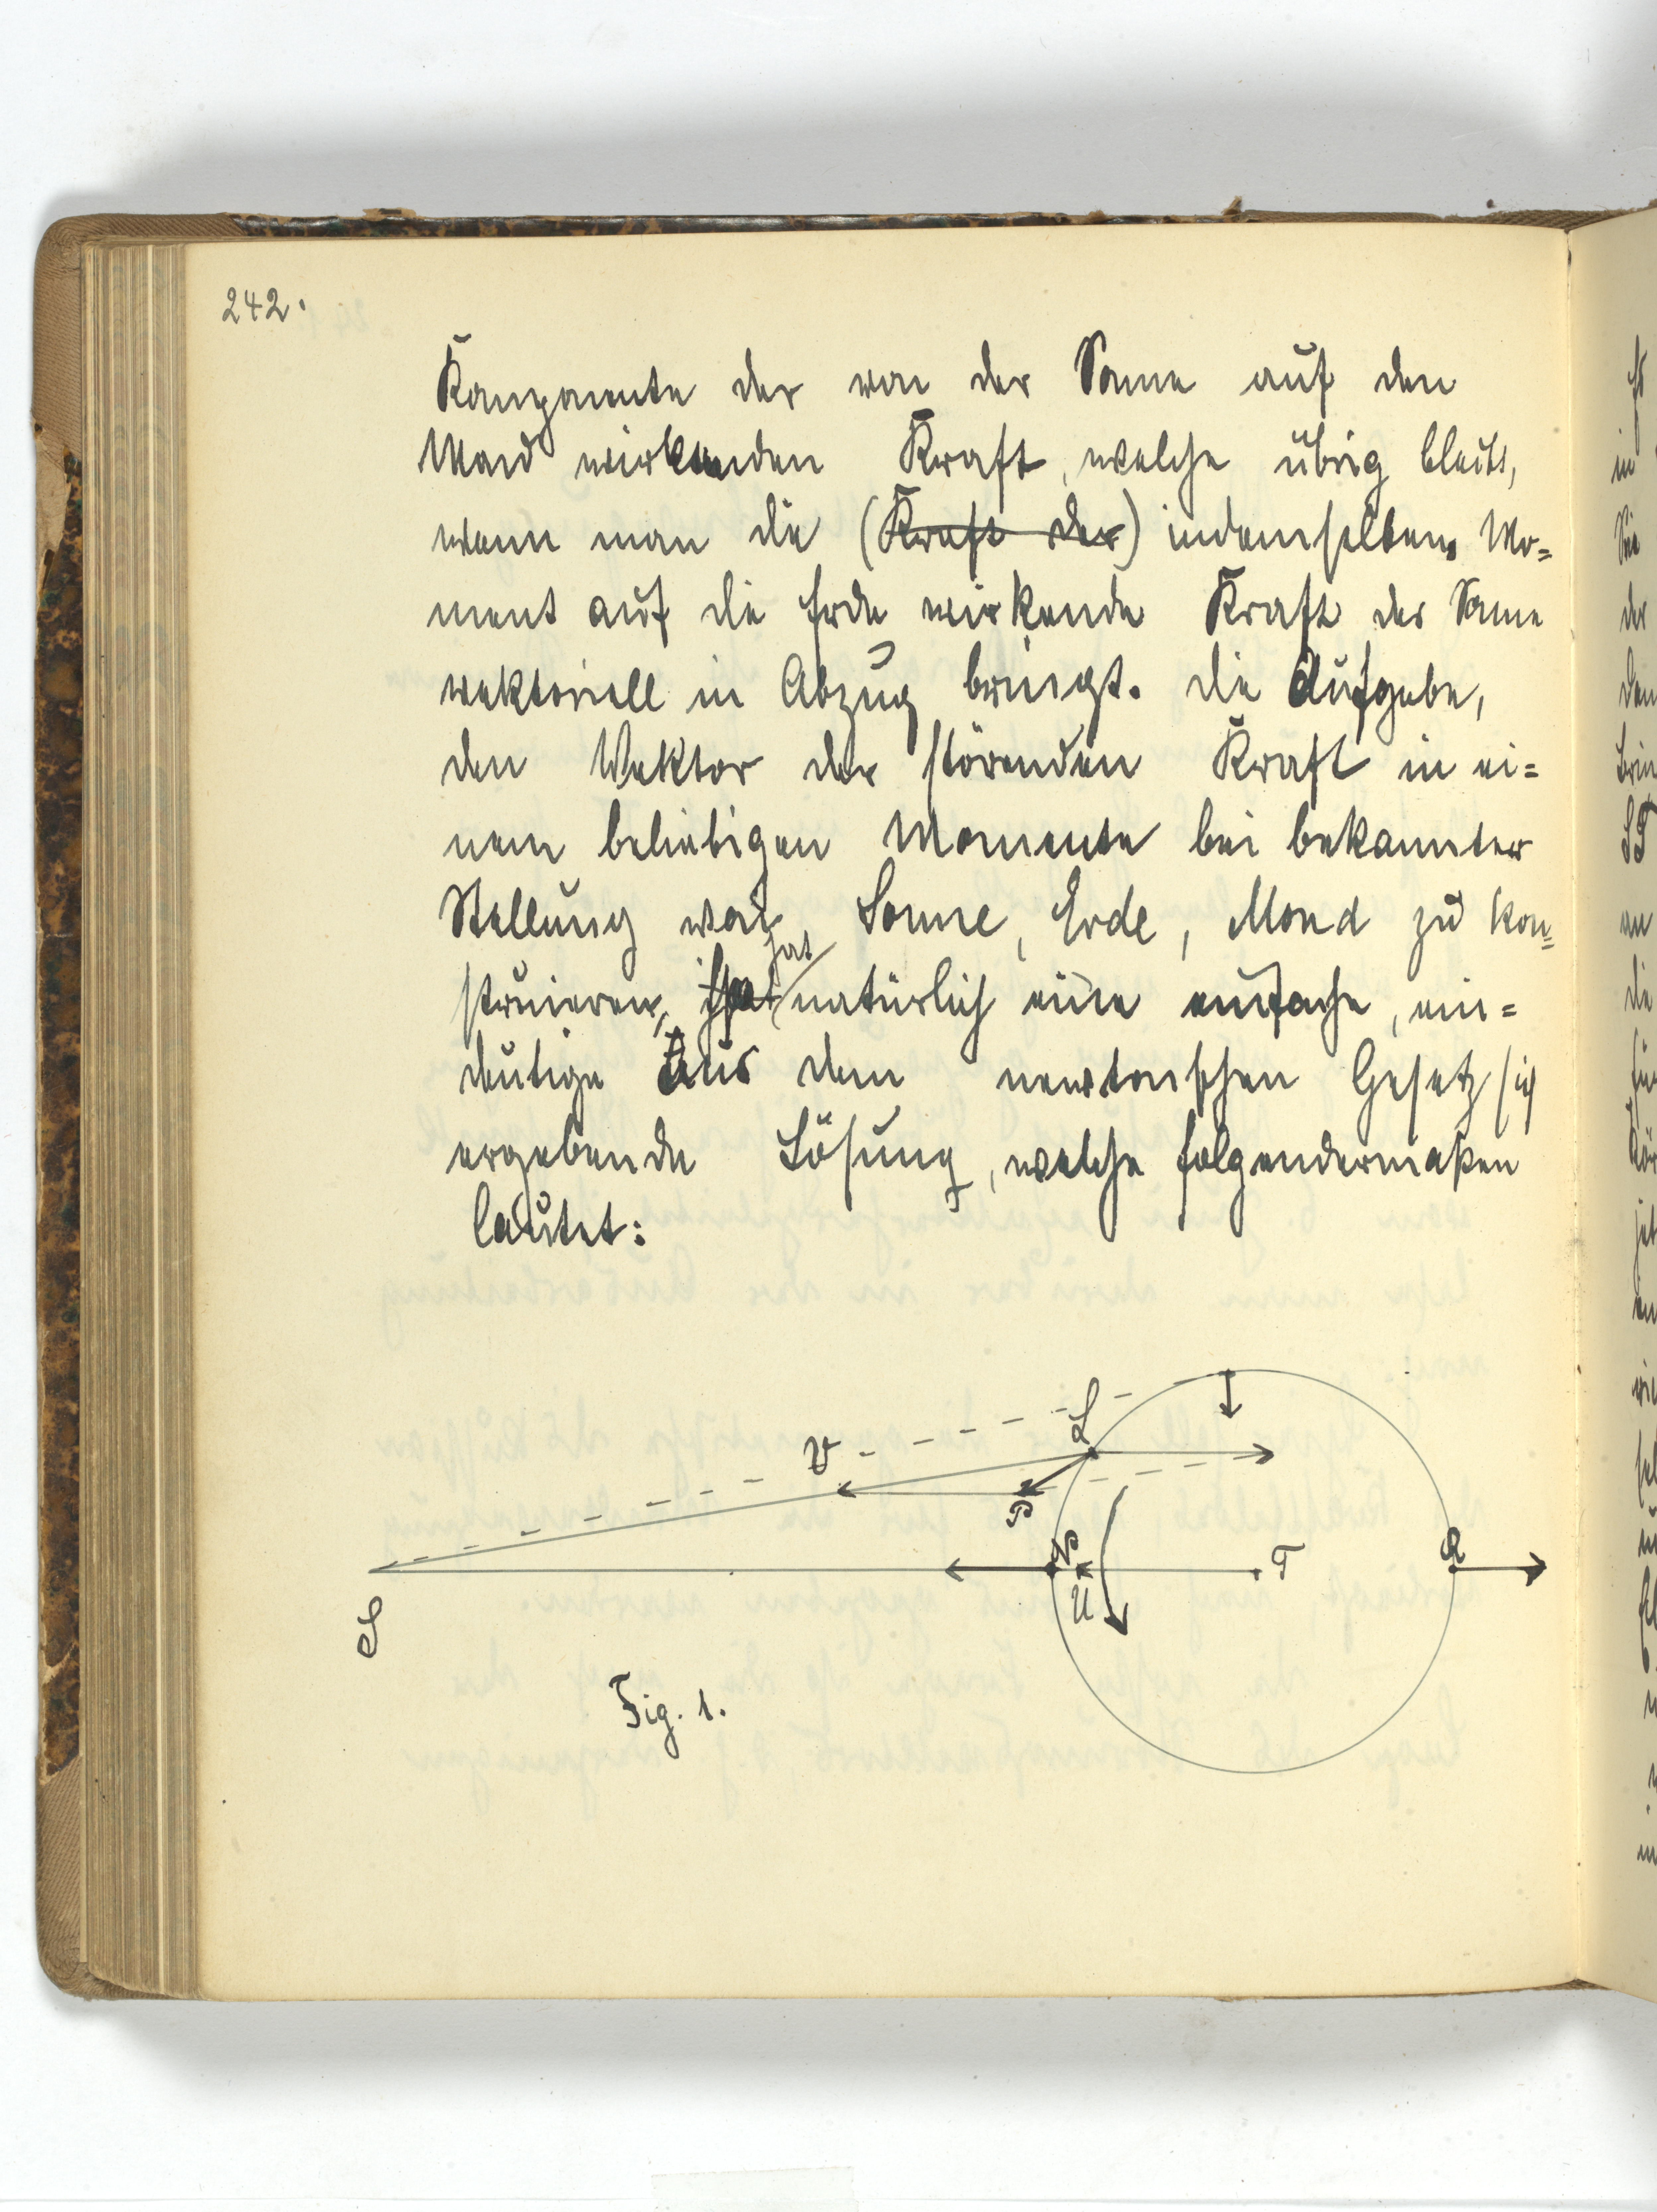 242.
Komponente der von der Sonne auf den
Mond wirkenden Kraft, welche übrig bleibt,
wenn man die (Kraft der) in demselben Mo=
ment auf die Erde wirkende Kraft der Sonne
vektoriell in Abzug bringt. Die Aufgabe,
den Vektor der störenden Kraft in ei=
nem beliebigen Momente bei bekannter
Stellung von Sonne, Erde, Mond zu kon=
struieren, hat natürlich eine einfache, ein=
deutige aus dem newtonschen Gesetz sich
ergebende Lösung, welche folgendermaßen
lautet:
L
V
P
N
T
R
U
S
Fig. 1.